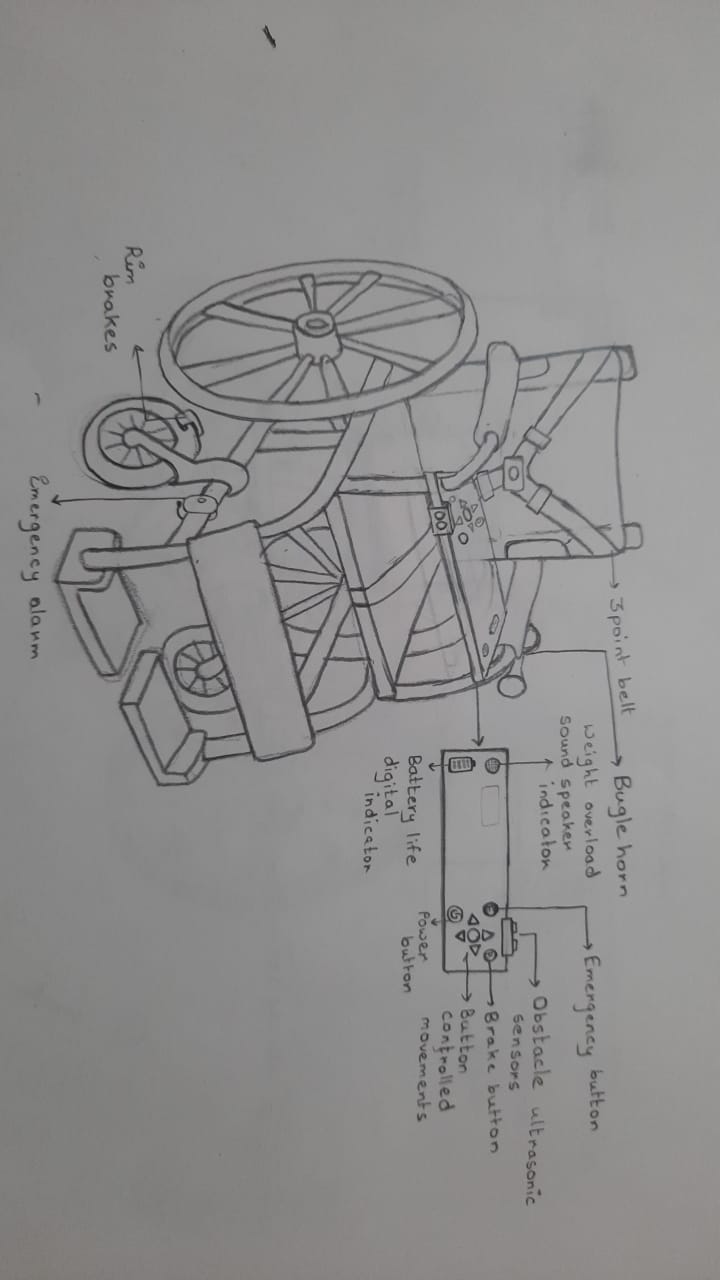 3point belt
Bugle horn
Weight overload
sound speaker
indicator
Emergency button
Obstacle ultrasonic
sensors
Brake button
Button
controlled
movements
Power
button
Battery life
digital
indicator
Rim
brakes
Emergency alarm